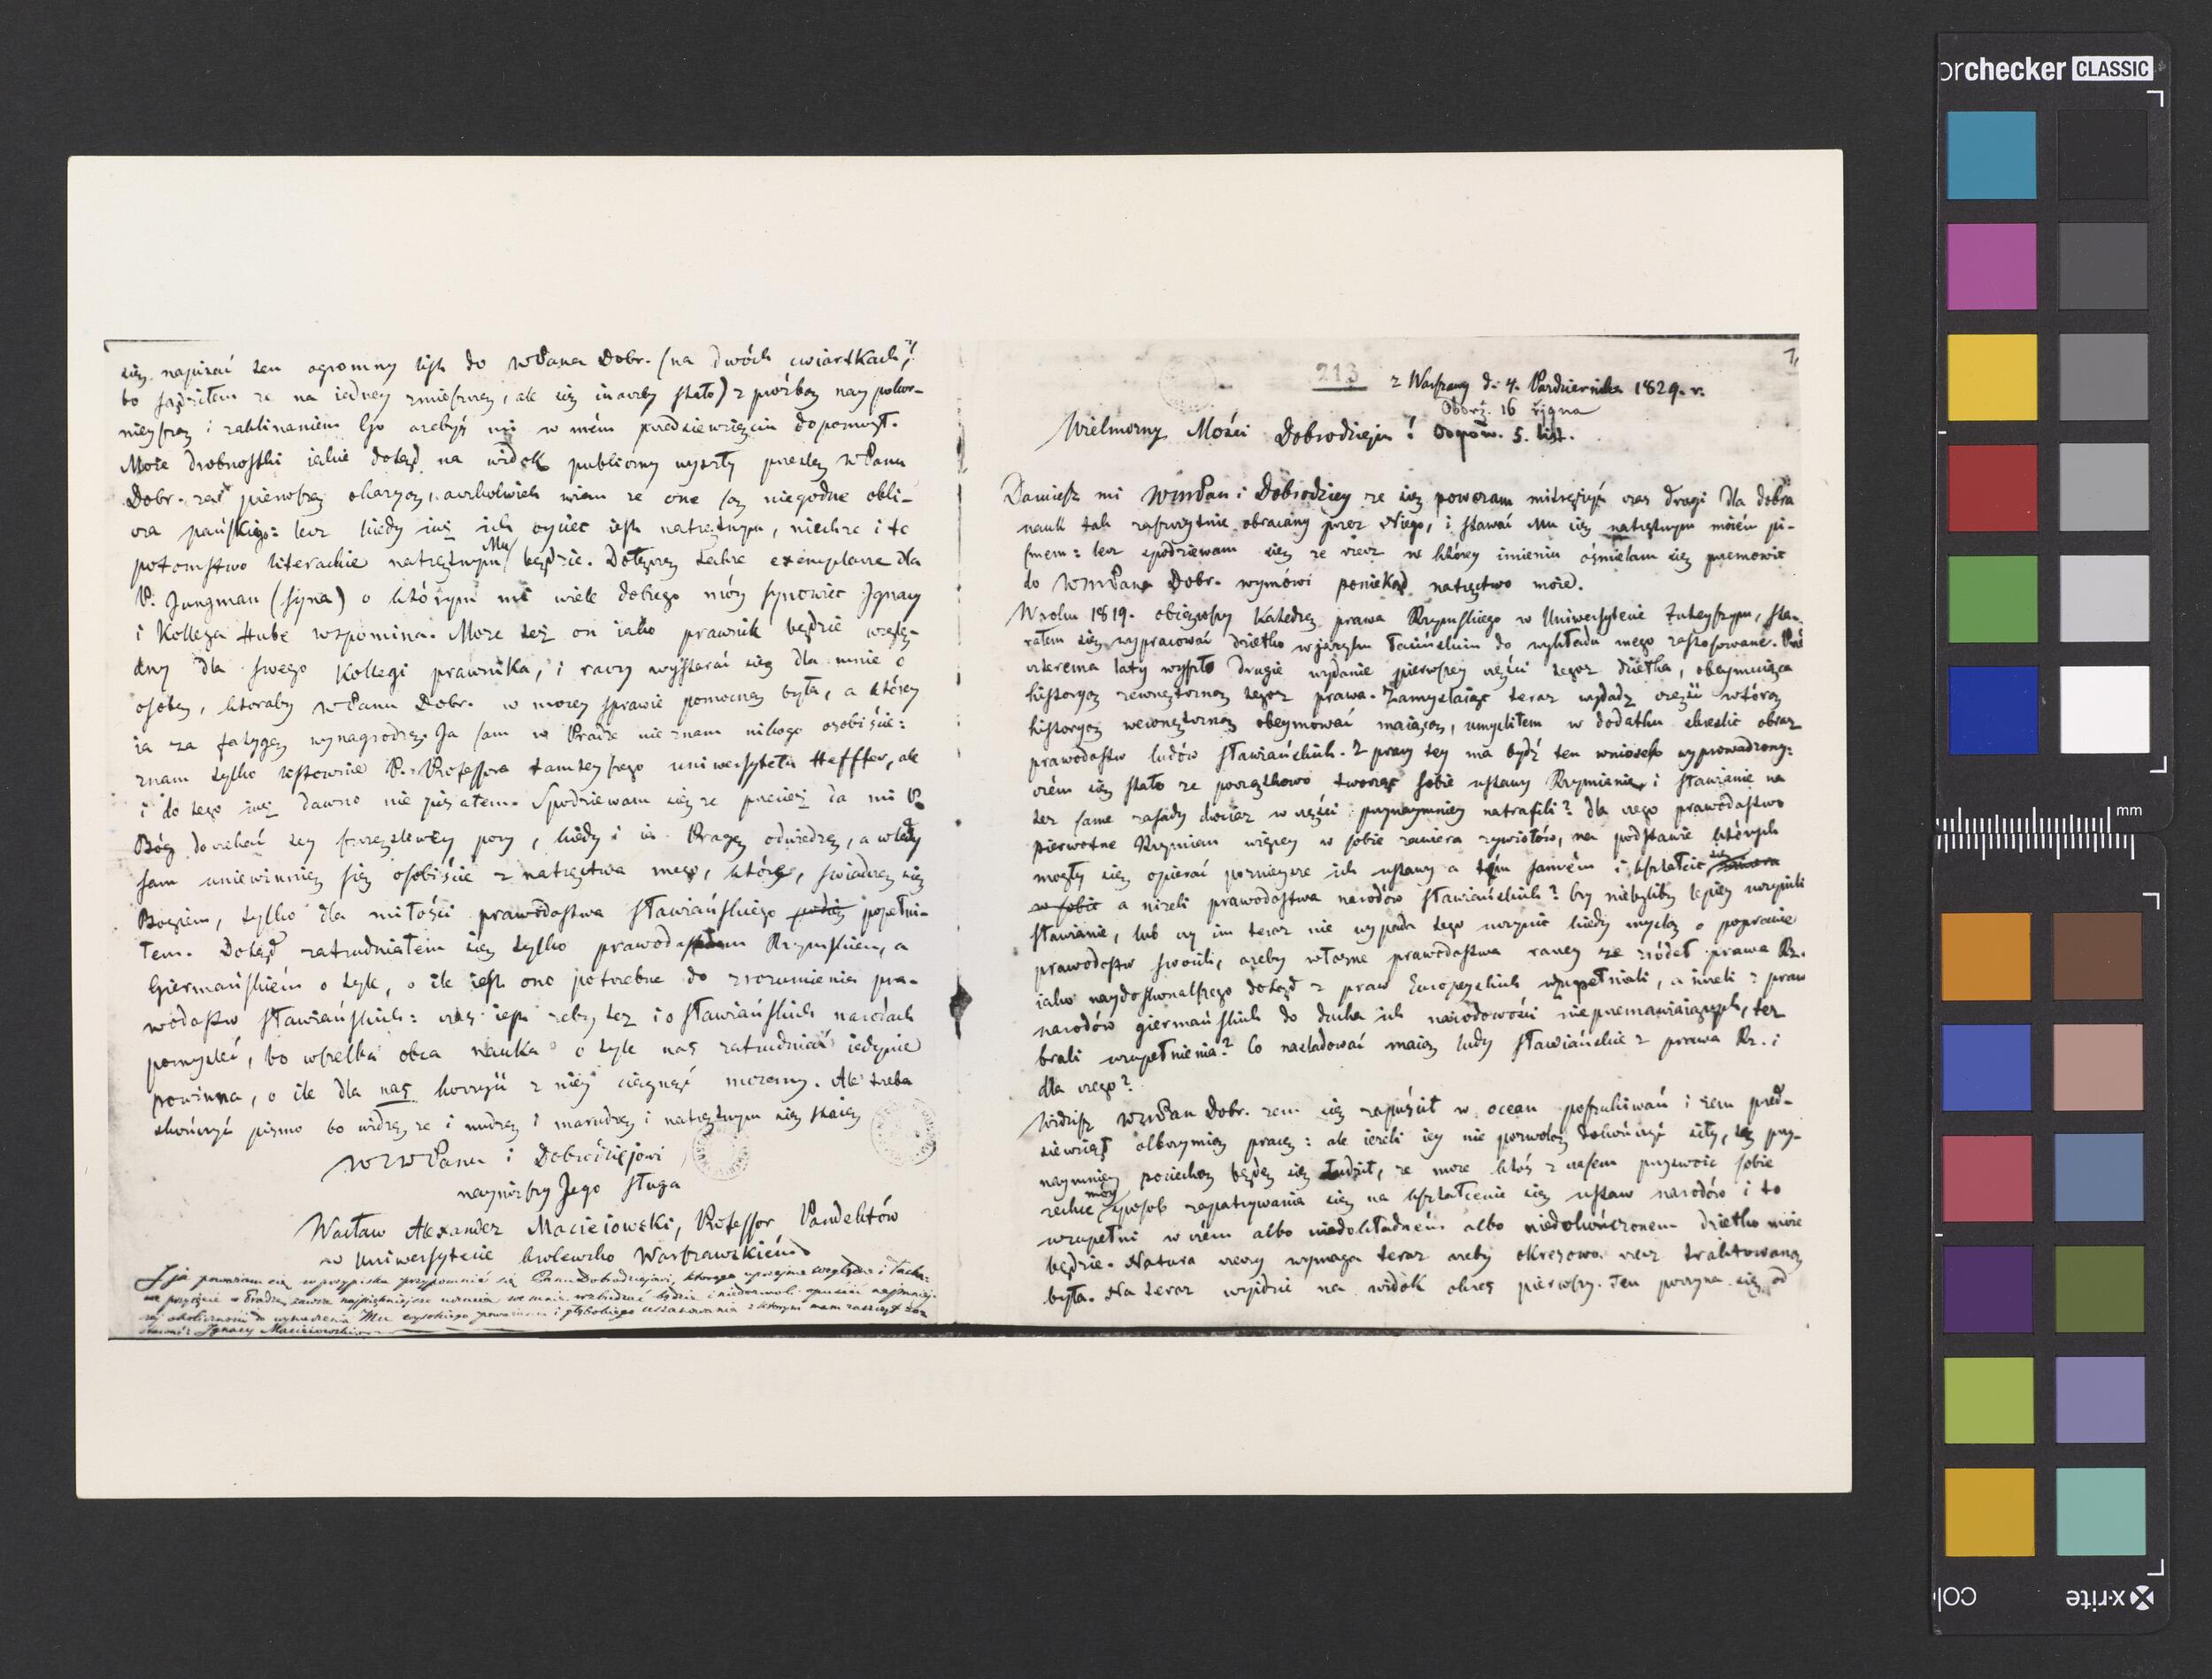 się napisać ten ogromny list do WPana Dobr. (na dwóch ćwiartkach,
bo sądziłem że na iedney zmieszczę, ale się inaczey stało) z prośbą nay pokor-
nieyszą i zaklinaniem Go ażebyś mi w mém przedsięwzięciu dopomógł.
Moie drobnostki iakie dotąd na widok publiczny wyszły prześlę WPanu
Dobr. za pierwszą okazyą, aczkolwiek wiem że one są niegodne obli-
cza pańskiego: lecz kiedy już ich oyciec iest natrętnym, niechże i te
potomstwo literackie natrętnym Mu będzie. Dołączę także exemplarze dla
P. Jungman (syna) o którym mi wiele dobrego móy synowiec Ignacy
i Kollega Hube wspomina. Może też on iako prawnik będzie wzglę-
dny dla swego Kollegi prawnika, i raczy wystarać się dla mnie o
osobę, któraby WPanu Dobr. w moiey sprawie pomocną była, a którey
ia za fatygę wynagrodzę. Ja sam w Pradze nie znam nikogo osobiście:
znam tylko listownie P. Professora tamteyszego uniwersytetu Haffter, ale
i do tego iuż dawno nie pisałem. Spodziewam się że przecież da mi P.
Bóg doczekać tey szczęśliwey pory, kiedy i ia Pragę odwiedzę, a wtedy
sam uniewinnię się osobiście z natręctwa mego, które, świadczę się
Bogiem, tylko dla miłości prawodastwa sławiańskiego popełni-
łem. Dotąd zatrudniałem się tylko prawodastwem Rzymskiem, a
Giermańskiém o tyle, o ile iest ono potrzebne do zrozumienia pra-
wodastw sławiańskich: czas iest żeby też i o sławiańskich narodach
pomyśleć, bo wszelka obca nauka o tyle nas zatrudniać iedynie
powinna, o ile dla nas korzyści z niey ciągnąć możemy. Ale trzeba
skończyć pismo bo widzę że i nudzę i marudzę i natrętnym się staię
WWPanu i Dobrodziejowi
nayniższy Jego sługa
Wacław Alexander Macieiowski, Professor Pandektów
w Uniwersytecie krolewsko Warszawskiém
I ja poważam się w przypisku przypomnieć się Panu Dobrodziejowi, którego uprzejme względy i łaska-
we przyjęcie w Pradze, zawsze najpiękniejsze uczucia we mnie wzbudzać będzie i niedozwoli opuścić najmniej-
szej okoliczności do wynurzenia Mu wysokiego poważania i głębokiego uszanowania z którym mam zaszczyt zos-
tawać Ignacy Macieiowski
1,
213
z Warszawy d: 4. Pazdziernika 1829. r.
Obdrž. 16 řigna
Wielmożny Mości Dobrodzieju! Odpów. 5. list.
Daruiesz mi WmPan i Dobrodziey że się poważam mitrężyć czas drogi dla dobra
nauk tak zaszczytnie obracany przez Niego, i stawać Mu się natrętnym moiém pi-
smem: lecz spodziewam się że rzecz w którey imieniu ośmielam się przemówić
do WmPana Dobr. wymówi poniekąd natręctwo moie.
W roku 1819. obiąwszy Katedrę prawa Rzymskiego w Uniwersytecie Tuteyszym, sta-
rałem się wypracować dziełko w języku łacińskim do wykładu mego zastosowane. Przed
czterema laty wyszło drugie wydanie pierwszey części tegoż dziełka, obeymuiąca
historyą zewnętrzną tegoż prawa. Zamyślaiąc teraz wydadź część wtórą
historyą wewnętrzną obeymować maiącą, umyśliłem w dodatku skreślić obraz
prawodastw ludów sławiańskich. Z pracy tey ma bydź ten wniosek wyprowadzony:
czém się stało że początkowo tworząc sobie ustawy Rzymianie i sławianie na
też same zasady chociaż w części przynaymniey natrafili? dla czego prawodastwo
pierwotne Rzymian więcey w sobie zawiera żywiołów, na podstawie których
mogły się opierać poźnieysze ich ustawy a tém samém i kształcić się
a niżeli prawodastwa narodów sławiańskich? czy nielepiéj uczynili
sławianie, lub czy im teraz nie wypada tego uczynić kiedy myślą o poprawie
prawodastw swoich, ażeby własne prawodastwa raczey ze źródeł prawa Rz.
iako naydoskonalszego dotąd z praw Europeyskich uzupełniali, a niżeli z praw
narodów giermańskich do ducha ich narodowości nieprzemawiaiących, też
brali uzupełnienia? Co naśladować maią ludy sławiańskie z prawa Rz. i
dla czego?
Widzisz WmPan Dobr. żem się zapuścił w ocean poszukiwań i żem przed-
siewziął olbrzymią pracę: ale ieżeli iey nie pozwolą dokończyć siły, tą przy-
naymniey pociechą będę się łudził, że może ktoś z czasem przyswoić sobie
zechce móy sposób zapatrywania się na kształcenie się ustaw narodów i to
uzupełni w czém albo niedokładném albo niedokończonem dziełko moie
będzie. Natura rzeczy wymaga teraz ażeby okresowo rzecz traktowaną
była. Na teraz wyidzie na widok okres pierwszy. Ten poczyna się od
orchecker CLASSIC
mm
x-rite
col